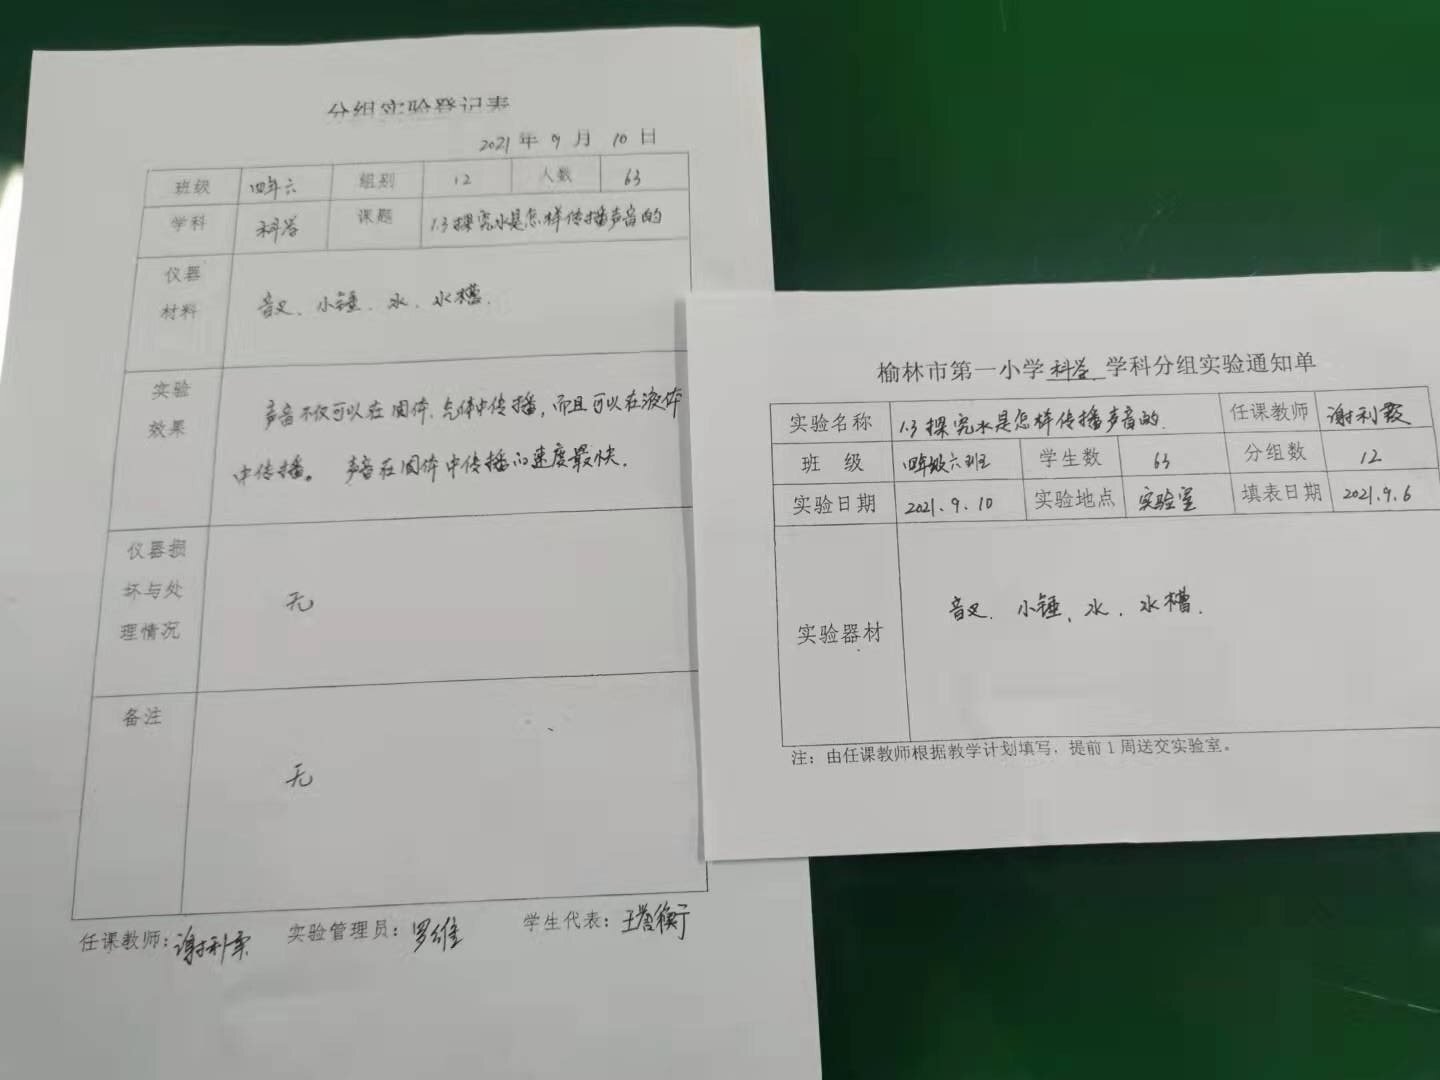 分组实验登记表
2021年9月10日
班级 四年六 组别 12 人数 63
学科 科学 课题 1.3探究水是怎样传播声音的
仪器
材料
音叉、小锤、水、水槽.
实验
效果
声音不仅可以在固体、气体中传播,而且可以在液体
中传播。声音在固体中传播的速度最快.
仪器损
坏与处
理情况
无
备注
无
任课教师: 谢利霞 实验管理员: 罗维 学生代表: 王 衡
榆林市第一小学科学学科分组实验通知单
实验名称 1.3探究水是怎样传播声音的. 任课教师 谢利霞
班 级 四年级六班 学生数 63 分组数 12
实验日期 2021.9.10 实验地点 实验室 填表日期 2021.9.6
实验器材 音叉.小锤、水.水槽.
注:由任课教师根据教学计划填写,提前1周送交实验室。